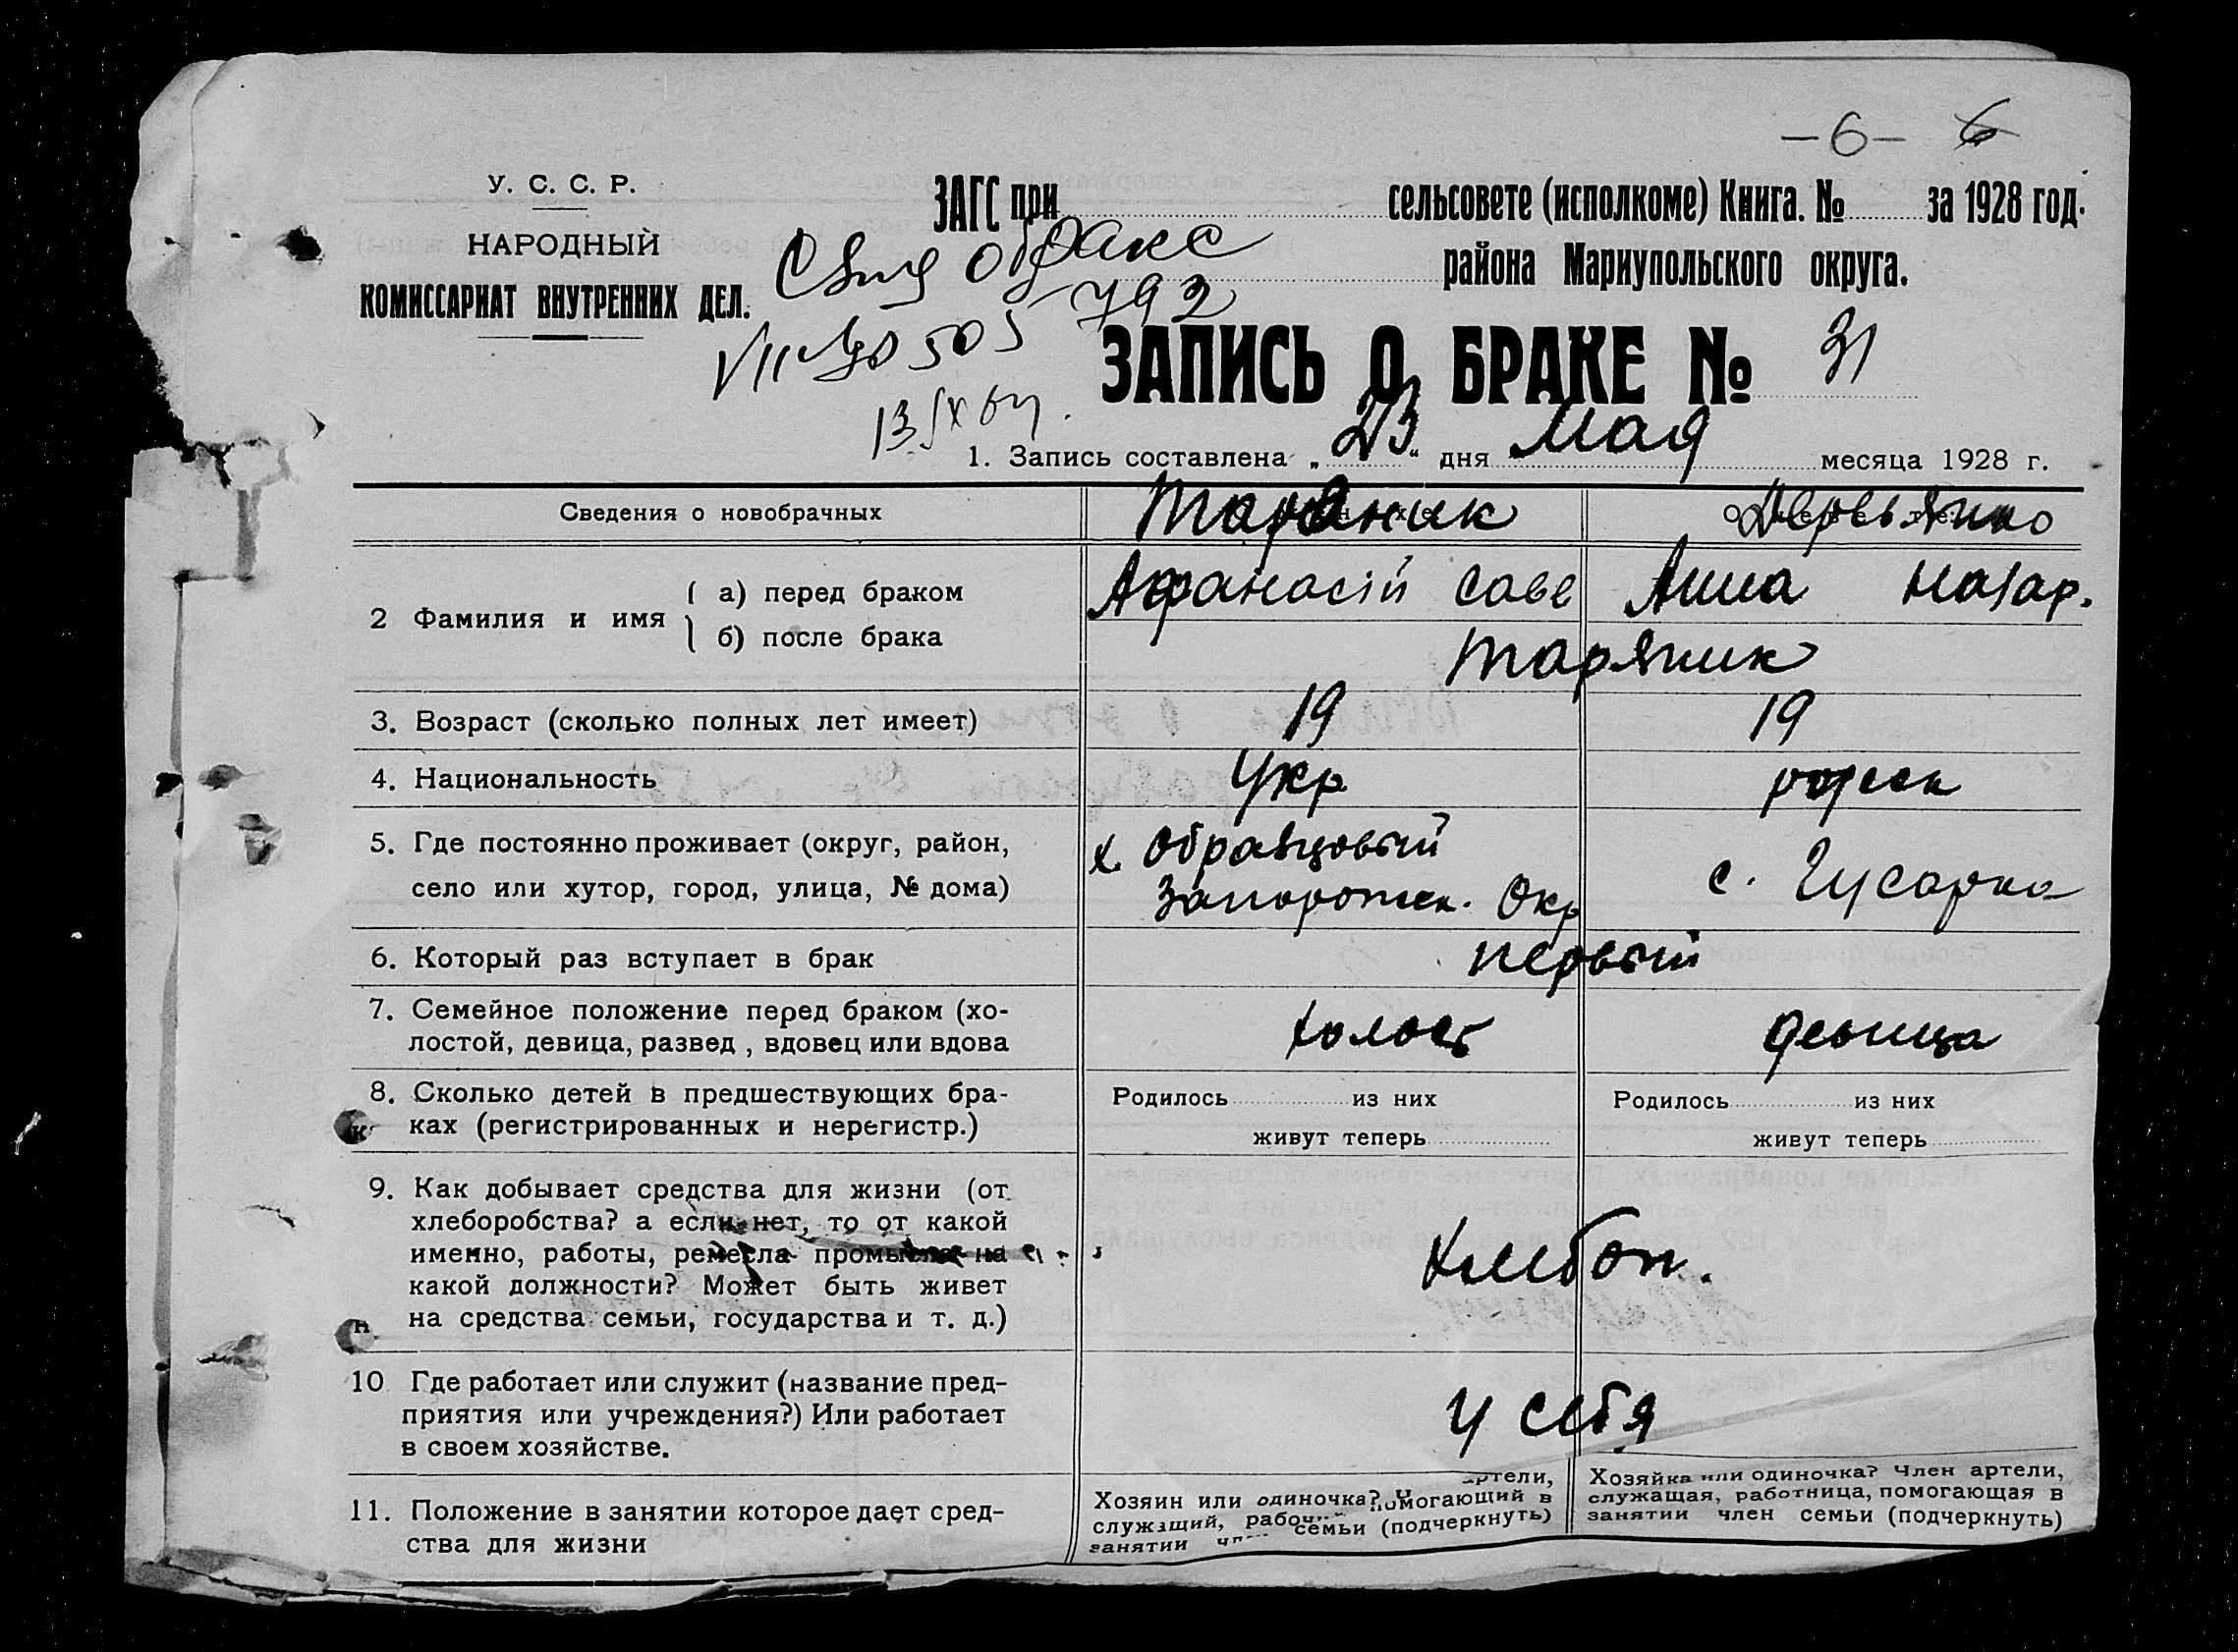 — 6 — 6
У. С. С. Р.
НАРОДНЫЙ
КОМИССАРИАТ ВНУТРЕННИХ ДЕЛ.
ЗАГС при сельсовете (исполкоме) Книга. № за 1928 год.
района Мариупольского округа.
о браке
505792
ЗАПИСЬ О БРАКЕ № 31
1. Запись составлена „23“ дня Мая месяца 1928 г.
Сведения о новобрачных
Таряник Деревьянко
2 Фамилия и имя
а) перед браком Афанасій Саве Анна Назар.
б) после брака Таряник
3. Возраст (сколько полных лет имеет) 19 19
4. Национальность Укр
5. Где постоянно проживает (округ, район, х. Образцовый
село или хутор, город, улица, № дома) Запорожск. Окр с. Гусарка
6. Который раз вступает в брак первый
7. Семейное положение перед браком (хо-
лостой, девица, развед , вдовец или вдова холост девица
8. Сколько детей в предшествующих бра- Родилось из них Родилось из них
ках (регистрированных и нерегистр.) живут теперь живут теперь
9. Как добывает средства для жизни (от
хлеборобства? а если нет, то от какой
именно, работы, ремесла промысла на
какой должности? Может быть живет Хлебоп.
на средства семьи, государства и т. д.)
10 Где работает или служит (название пред-
приятия или учреждения?) Или работает у себя
в своем хозяйстве.
11. Положение в занятии которое дает сред-
ства для жизни
Хозяин или одиночка? артели,
служащий, помогающий в
занятии семьи (подчеркнуть)
Хозяйка или одиночка? Член артели,
служащая, работница, помогающая в
занятии член семьи (подчеркнуть)